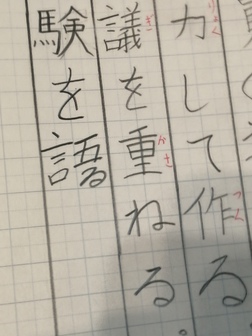 力して作る。
議を重ねる
験を語る